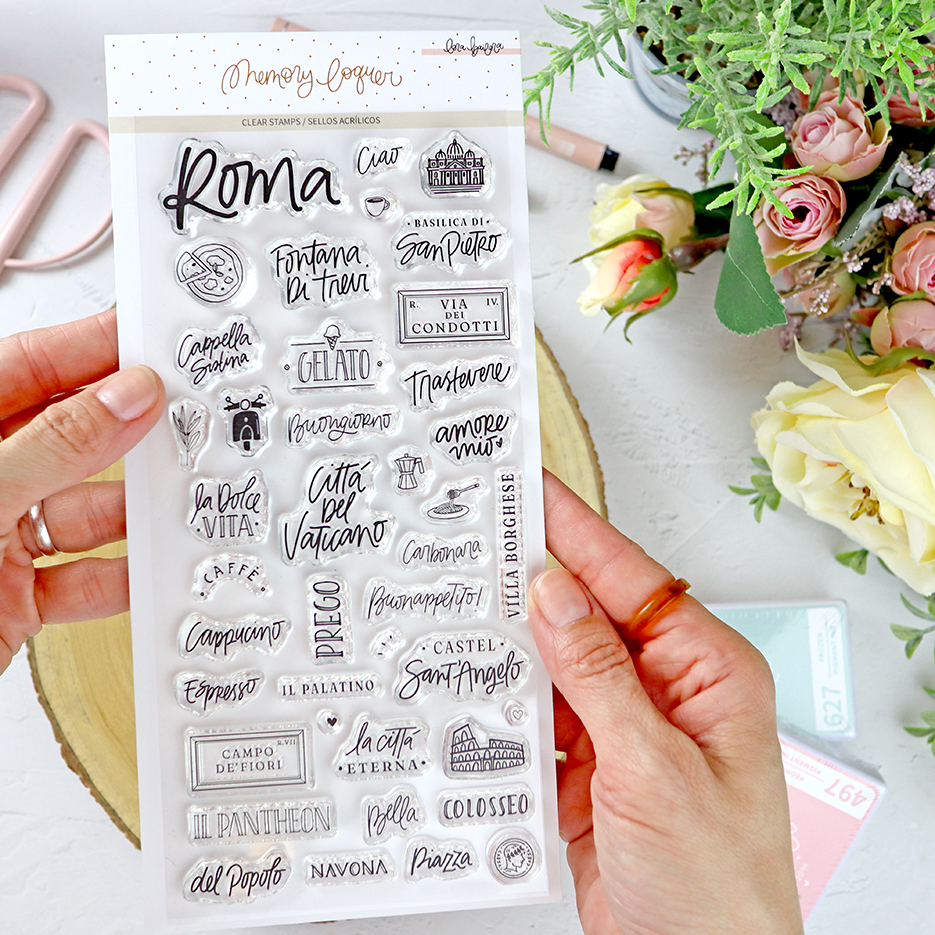 lora bailora
Memory loquer
CLEAR STAMPS / SELLOS ACRÍLICOS
Roma
Ciao
BASILICA DI
San Pietro
Fontana
Di Trevi
R. VIA IV.
DEI
CONDOTTI
Cappella
Sistina
GELATO
Trastevere
Buongiorno
amore
mio
la Dolce
VITA
Città
Del
Vaticano
VILLA BORGHESE
Carbonara
CAFFÈ
PREGO
Buonappetito!
Cappucino
CASTEL
Sant'Angelo
Espresso
IL PALATINO
R.VII
CAMPO
DE'FIORI
la città
ETERNA
IL PANTHEON
Bella
COLOSSEO
del Popolo
NAVONA
Piazza
627
497